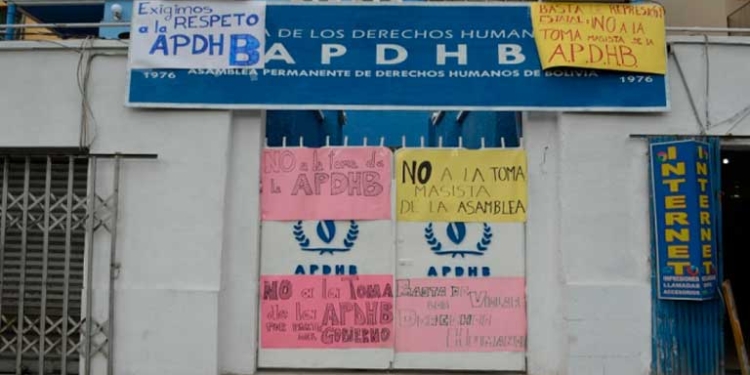 Exigimos
RESPETO
a la
APDHB
BASTA DE REPRESIÓN
ESTATAL. NO A LA
TOMA MASISTA DE LA
A.P.D.H.B.
A DE LOS DERECHOS HUMAN
APDHB
1976
ASAMBLEA PERMANENTE DE DERECHOS HUMANOS DE BOLIVIA
1976
NO a la toma de
la APDHB
NO A LA TOMA
MASISTA
DE LA ASAMBLEA
APDHB
APDHB
NO a la TOMA
de la APDHB
POR PARTE
DEL GOBIERNO
BASTA DE
DERECHOS
HUMANOS
INTERNET
INTERNET
IMPRESIONES
LLAMADAS
ACCESORIOS